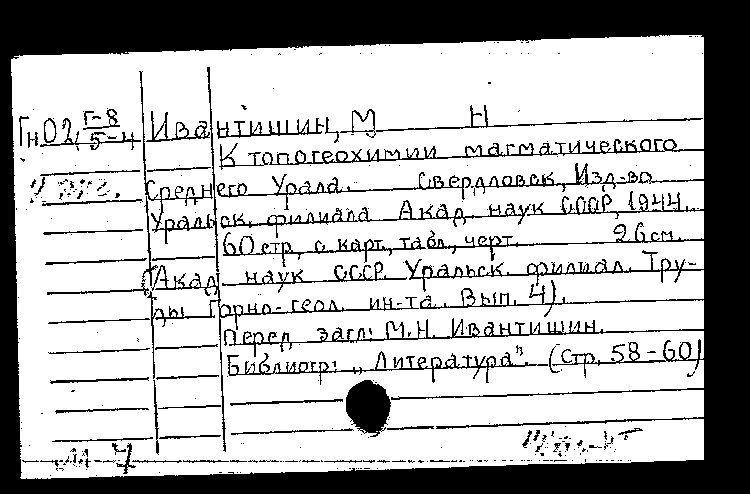 Гн02, Г-8/5-4 Ивантишин, М Н
К топогеохимии магматического
Среднего Урала. Свердловск, Изд-во
Уральск. филиала Акад. наук СССР, 1944.
60 стр, с карт., табл., черт. 26 см.
(Акад наук СССР. Уральск. филиал. Тру-
ды Горно-геол. ин-та. Вып. 4).
Перед загл: М.Н. Ивантишин.
Библиогр: „Литература". (стр. 58-60)
М 7